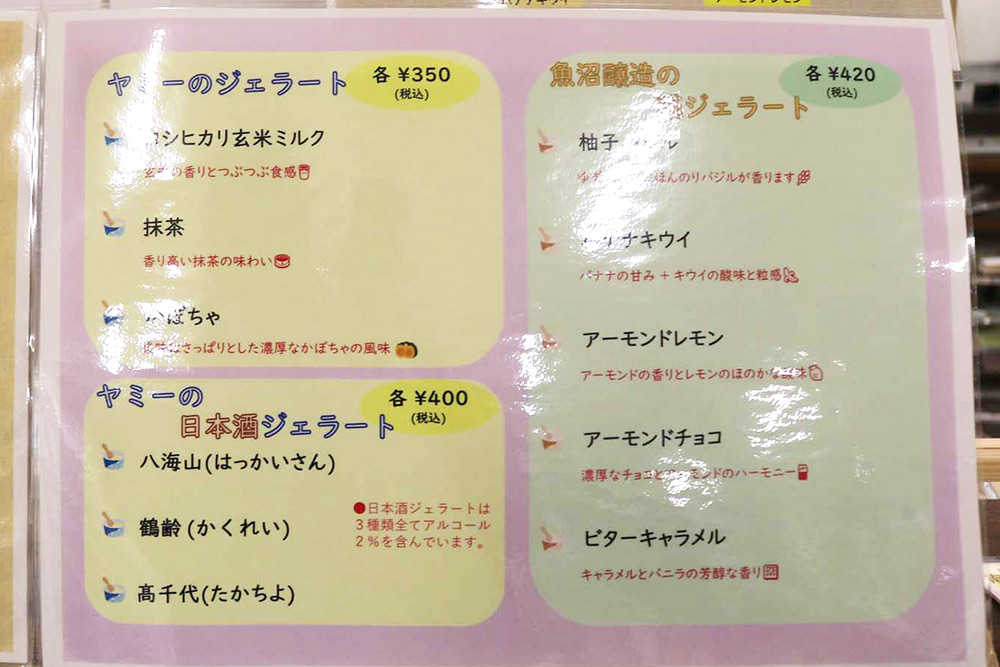 ヤミーのジェラート
各 ¥350
(税込)
コシヒカリ玄米ミルク
玄米の香りとつぶつぶ食感
抹茶
香り高い抹茶の味わい
かぼちゃ
さっぱりとした濃厚なかぼちゃの風味
ヤミーの
日本酒ジェラート
各 ¥400
(税込)
八海山(はっかいさん)
鶴齢(かくれい)
髙千代(たかちよ)
●日本酒ジェラートは
3種類全てアルコール
2%を含んでいます。
魚沼醸造の
ジェラート
各 ¥420
(税込)
柚子
ほんのりバジルが香ります
バナナキウイ
バナナの甘み + キウイの酸味と粒感
アーモンドレモン
アーモンドの香りとレモンのほのかな酸味
アーモンドチョコ
濃厚なチョコとアーモンドのハーモニー
ビターキャラメル
キャラメルとバニラの芳醇な香り